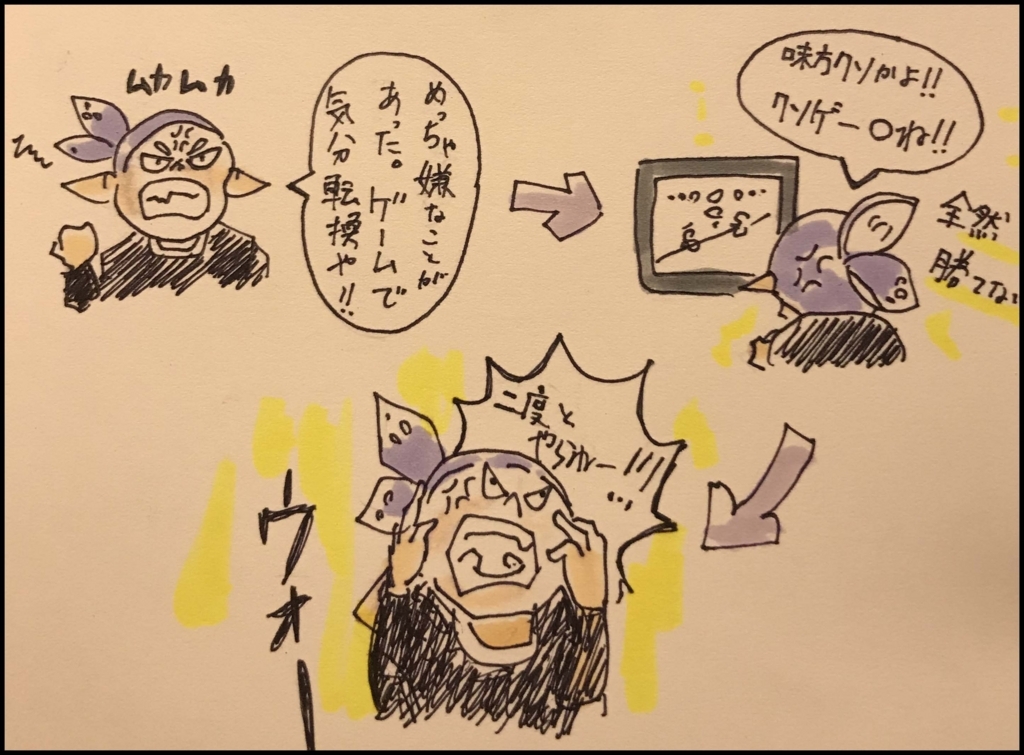 ムカムカ
めっちゃ嫌なことが
あった。ゲームで
気分転換や!!
味方クソかよ!!
クソゲー〇ね!!
全然
勝てない
二度と
やらねー!!!
...
ウォー